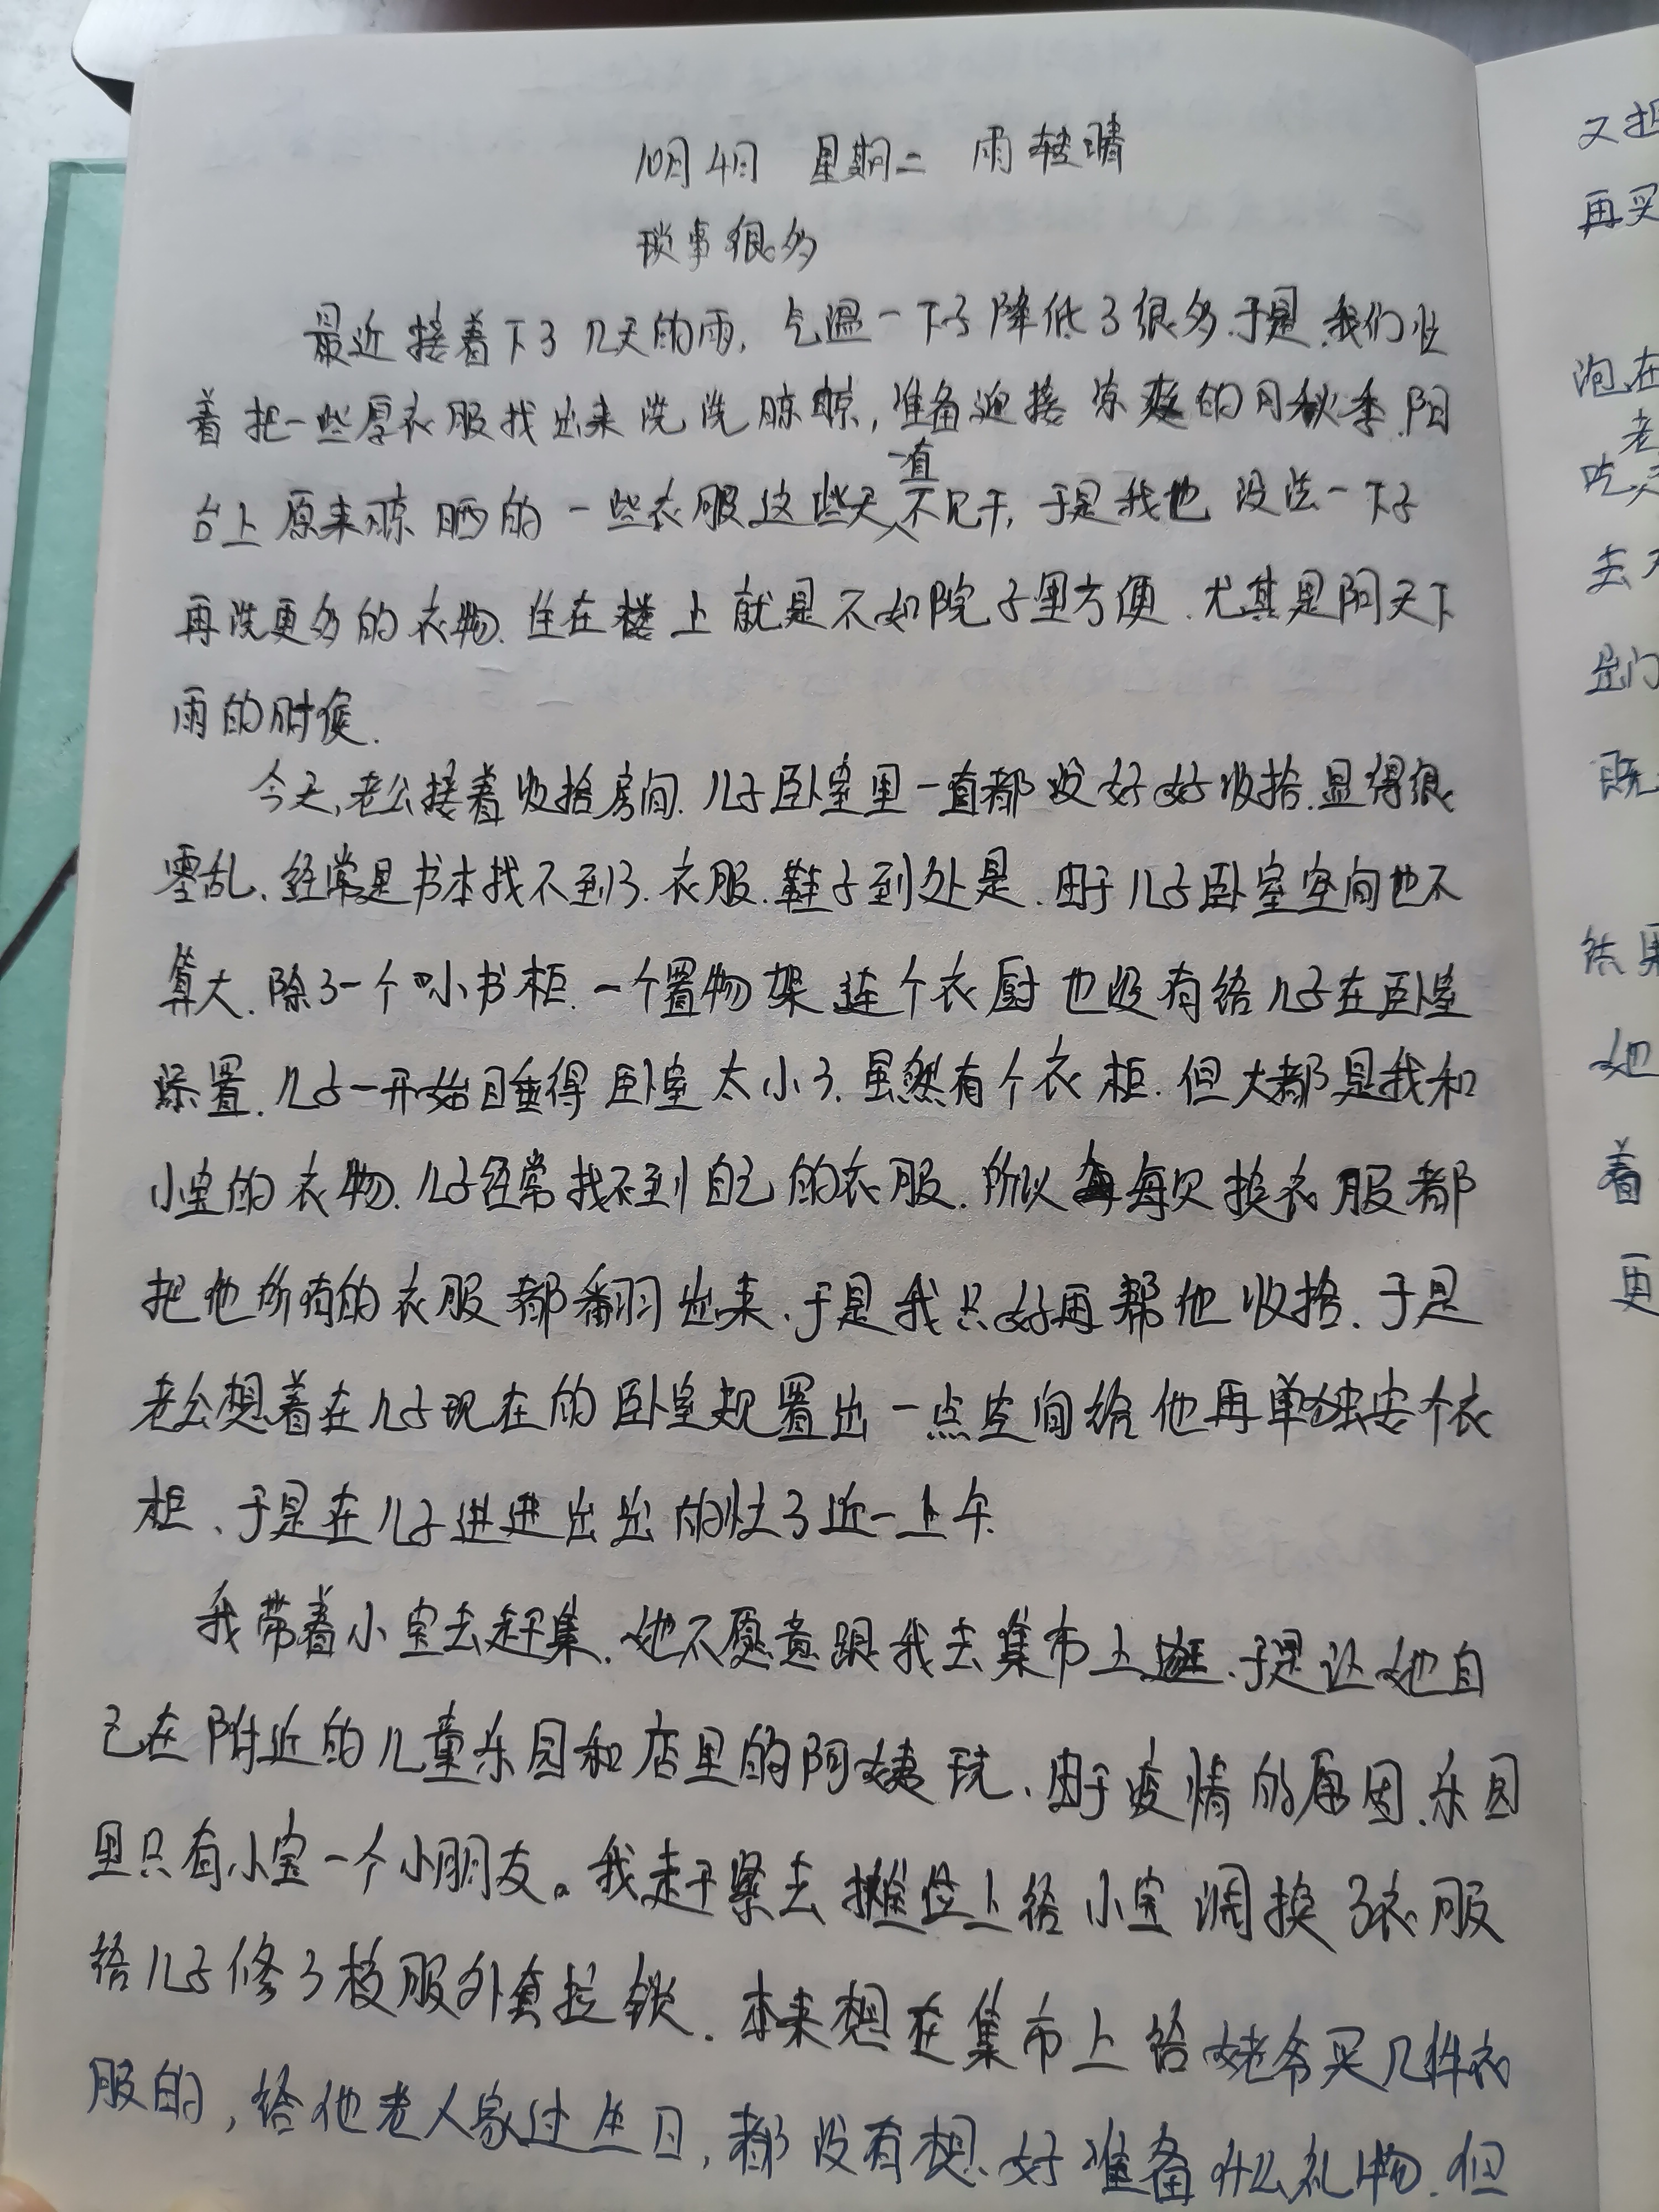 10月4日 星期二 雨转晴
琐事很多
最近接着下了几天的雨,气温一下子降低了很多.于是,我们忙
着把一些厚衣服找出来洗洗晾晾,准备迎接凉爽的秋季.阳
台上原来晾晒的一些衣服这些天一直不见干,于是我也没法一下子
再洗更多的衣物.住在楼上就是不如院子里方便.尤其是阴天下
雨的时候.
今天,老公接着收拾房间.儿子卧室里一直都没好好收拾.显得很
零乱.经常是书本找不到了.衣服.鞋子到处是.由于儿子卧室空间也不
算大.除了一个小书柜.一个置物架连个衣厨也没有给儿子在卧室
添置.儿子一开始睡得卧室太小了.虽然有个衣柜.但大都是我和
小宝的衣物.儿子经常找不到自己的衣服.所以每每次换衣服都
把他所有的衣服都翻出来.于是我只好再帮他收拾.于是
老公想着在儿子现在的卧室规置出一点空间给他再单独安个衣
柜、于是在儿子进进出出的忙了近一上午.
我带着小宝去赶集.她不愿意跟我去集市上逛.于是让她自
己在附近的儿童乐园和店里的阿姨玩、由于疫情的原因.乐园
里只有小宝一个小朋友。我赶紧去摊位上给小宝调换了衣服
给儿子修了校服外套拉锁.本来想在集市上给姥爷买几件衣
服的,给他老人家过生日,都没有想好准备什么礼物.但
又把
再买
泡在
老
吃
去
既
结果
她
着
更